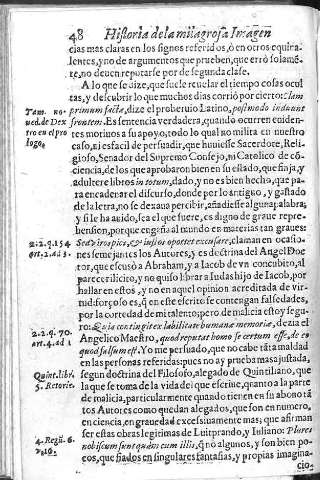 48 Historia de la milagrosa Imagen
cias mas claras en los signos referidos, ò en otros equiva-
lentes, y no de argumentos que prueben, que errò solamẽ-
te, no deuen reputarse por de segunda clase.
A lo que se dize, que suele reuelar el tiempo cosas ocul
tas, y descubrir lo que muchos dias corriò por cierto: Iam
primum facta, dize el prouerbio Latino, postmodo induunt
frontem. Es sentencia verdadera, quando ocurren euiden-
tes motiuos a su apoyo, todo lo qual no milita en nuestro
caso, ni es facil de persuadir, que huuiesse Sacerdote, Reli-
gioso, Senador del Supremo Consejo, ni Catolico de cõ-
ciencia, de los que aprobaron bien en su estado, que finja, y
adultere libros in totum, dado, y no es bien hecho, que pa-
ra encadenar el discurso, donde por lo antiguo, y gastado
de la letra, no se dexaua percibir, añadiesse alguna palabra;
y si le ha auido, sea el que fuere, es digno de graue repre-
hension, porque engaña al mundo en materias tan graues:
Sed viros pios, & iustos oportet excusare, claman en ocasio-
nes semejantes los Autores, y es doctrina del Angel Doc-
tor, que escusò a Abraham, y a Iacob de vn concubito, al
parecer ilicito, y no quiso librar a Iudas hijo de Iacob, por
hallar en estos, y no en aquel opinion acreditada de vir-
tud: forçoso es, q̃ en este escrito se contengan falsedades,
por la cortedad de mi talento; pero de malicia estoy segu-
ro: Quia contingit ex labilitate humanæ memoriæ, dezia el
Angelico Maestro, quod reputat homo se certum esse, de eo
quod falsum est. Yo me persuado, que no cabe tãta maldad
en las personas referidas; pues no ay prueba mas justada,
segun doctrina del Filosofo, alegado de Quintiliano, que
la que se toma de la vida del que escriue, quanto a la parte
de malicia, particularmente quando tienen en su abono tã
tos Autores como quedan alegados, que son en numero,
en ciencia, en grauedad excessiuamente mas; que afirman
ser estas obras legitimas de Luitprando, y Iuliano: Plures
nobiscum sunt quàm cum illis, q̃ no algunos, y son bien po-
cos, que fiados en singulares fantasias, y propias imagina-
cio-
Tam. no-
ued. de Dex
tro en el pro
logo.
2. 2. q. 154
art. 2. ad 3.
2. 2. q. 70.
art. 4. ad 1
Quint. lib.
5. Retoric.
4. Regũ. 6.
v. 16.